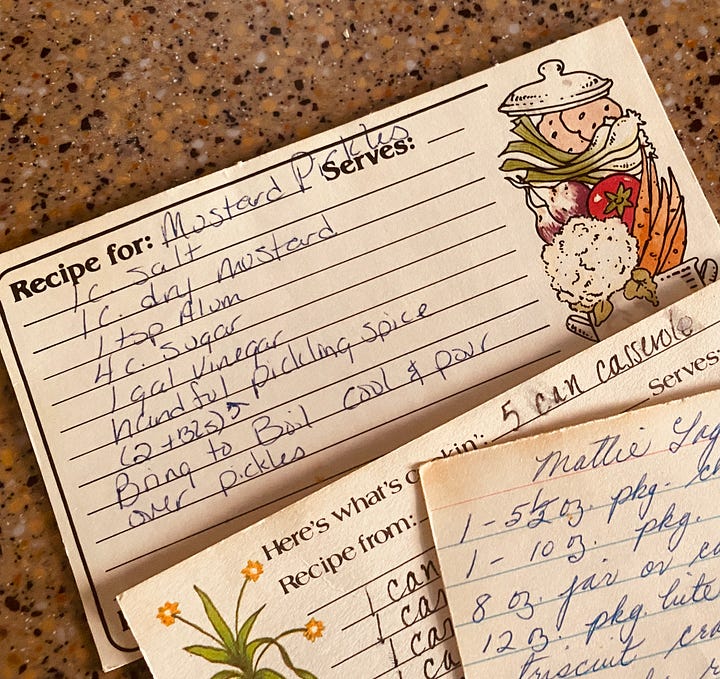 Recipe for: Mustard Pickles Serves:
1 c. salt
1 c. dry mustard
1 tsp Alum
4 c. sugar
1 gal vinegar
handful pickling spice
(2 + Bls)
Bring to Boil cool & pour
over pickles
Here's what's cookin': 5 can casserole
Recipe from: Serves:
1 can
1 can
1 can
1 ca
Mattie
1 - 5 1/2 oz. pkg.
1 - 10 oz. pkg.
8 oz. jar or
12 oz. pkg. bite
Triscuit